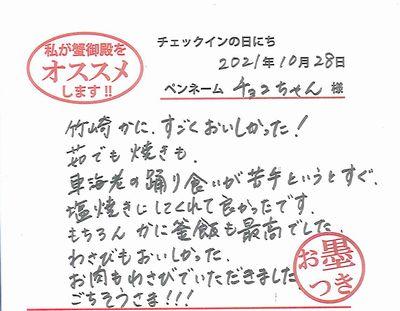 私が蟹御殿を
オススメ
します!!
チェックインの日にち
2021年10月28日
ペンネーム チョコちゃん 様
竹崎かに、すごくおいしかった!
茹でも焼きも、
車海老の踊り食いが苦手というとすぐ、
塩焼きにしてくれて良かったです。
もちろん かに釜飯も最高でした。
わさびもおいしかった。
お肉もわさびでいただきました。
ごちそうさま!!!
お墨
つき